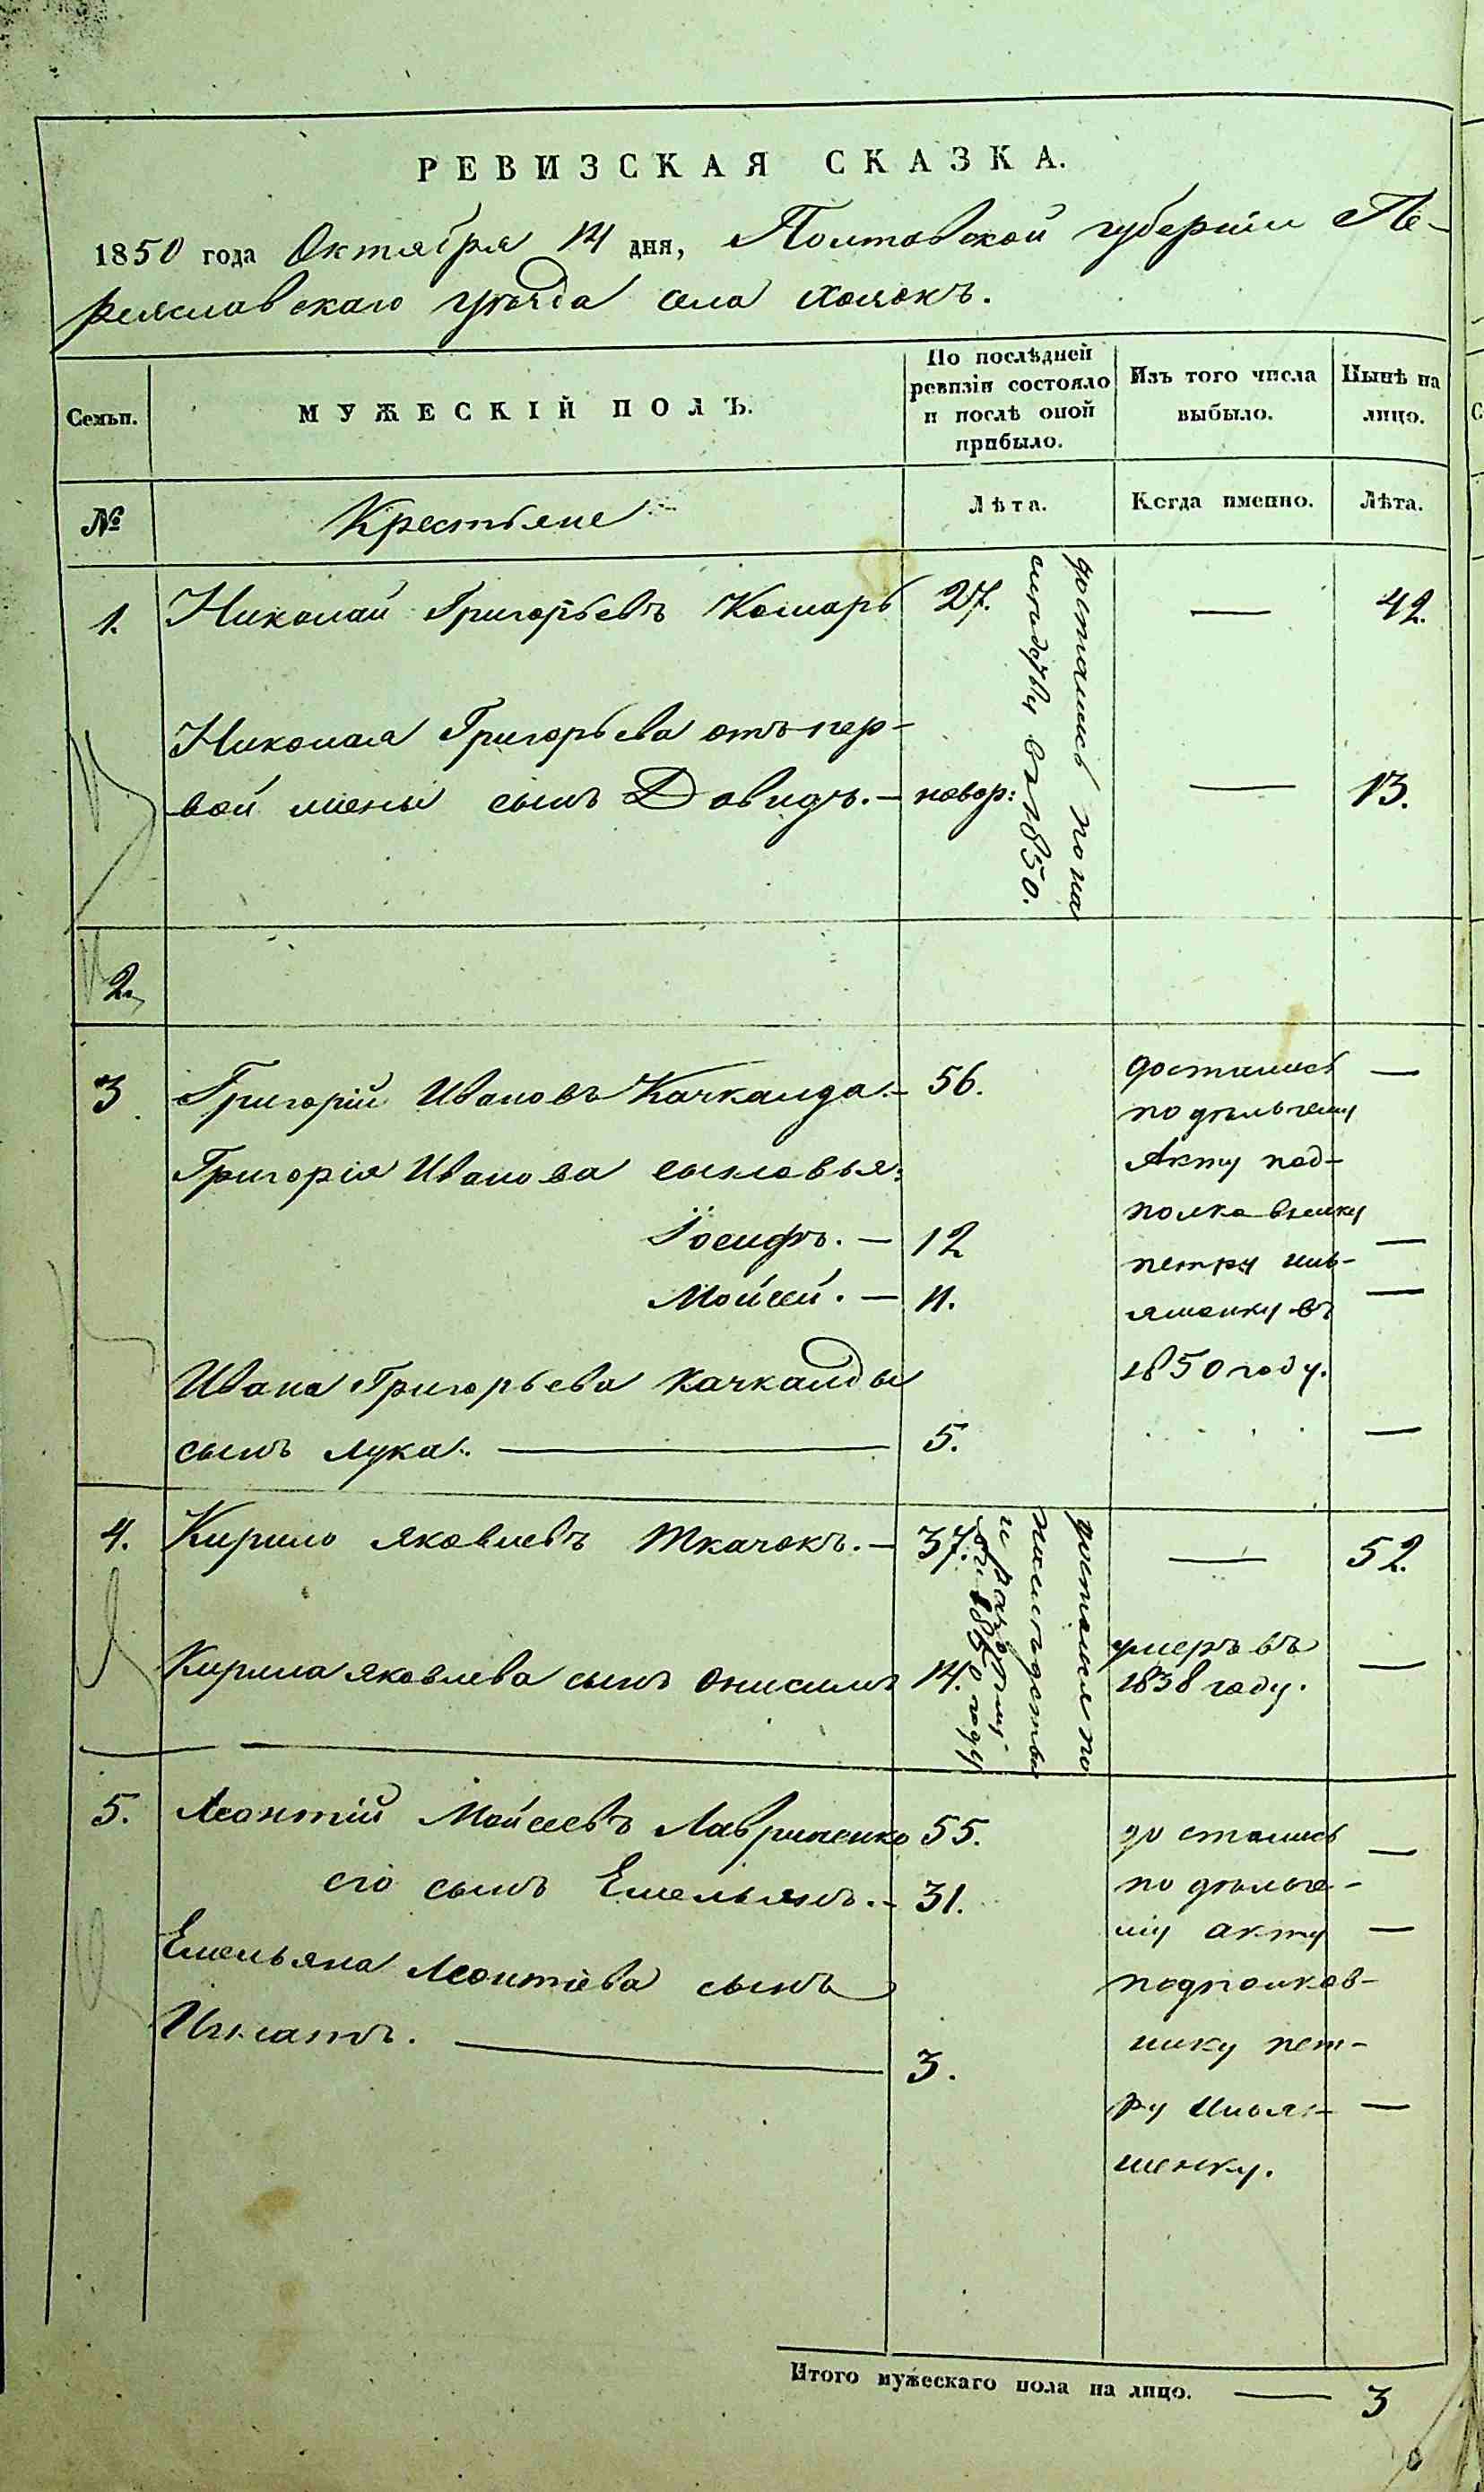 РЕВИЗСКАЯ СКАЗКА.
1850 года Октября 14 дня, Полтавской губернии Пе-
реяславскаго уѣзда села Хоцокъ.
Семьи.
МУЖЕСКІЙ ПОЛЪ.
По послѣдней ревизіи состояло и послѣ оной прибыло.
Изъ того числа выбыло.
Нынѣ на лицо.
№
Крестьяне
Лѣта.
Когда именно.
Лѣта.
1. Николай Григорьевъ Комарь 27. — 42.
Николая Григорьева отъ пер-
вой жены сынъ Давидъ. — новор: — 13.
достались по на
слѣдству в 1850.
2.
3 Григорій Ивановъ Качкалда. — 56. —
Григорія Иванова сыновья:
Іосифъ. — 12 —
Мойсей. — 11. —
Ивана Григорьева Качкалды
сынъ Лука. — 5. —
достались
по дѣльчему
Акту под-
полковнику
петру иль-
яшенку въ
1850 году.
4. Кирило Яковлевъ Ткачокъ. — 37. — 52.
Кирила Яковлева сынъ Онисимъ 14. —
достался по
наслѣдству
и раздѣлу
въ 1850 году
умеръ въ
1838 году.
5. Леонтій Мойсеевъ Лавриненко 55. —
его сынъ Емельянъ. — 31. —
Емельяна Леонтіева сынъ
Игнатъ. — 3. —
достались
по дѣльче-
му акту
подполков-
нику пет-
ру Илья-
шенку.
Итого мужескаго пола на лицо. — 3